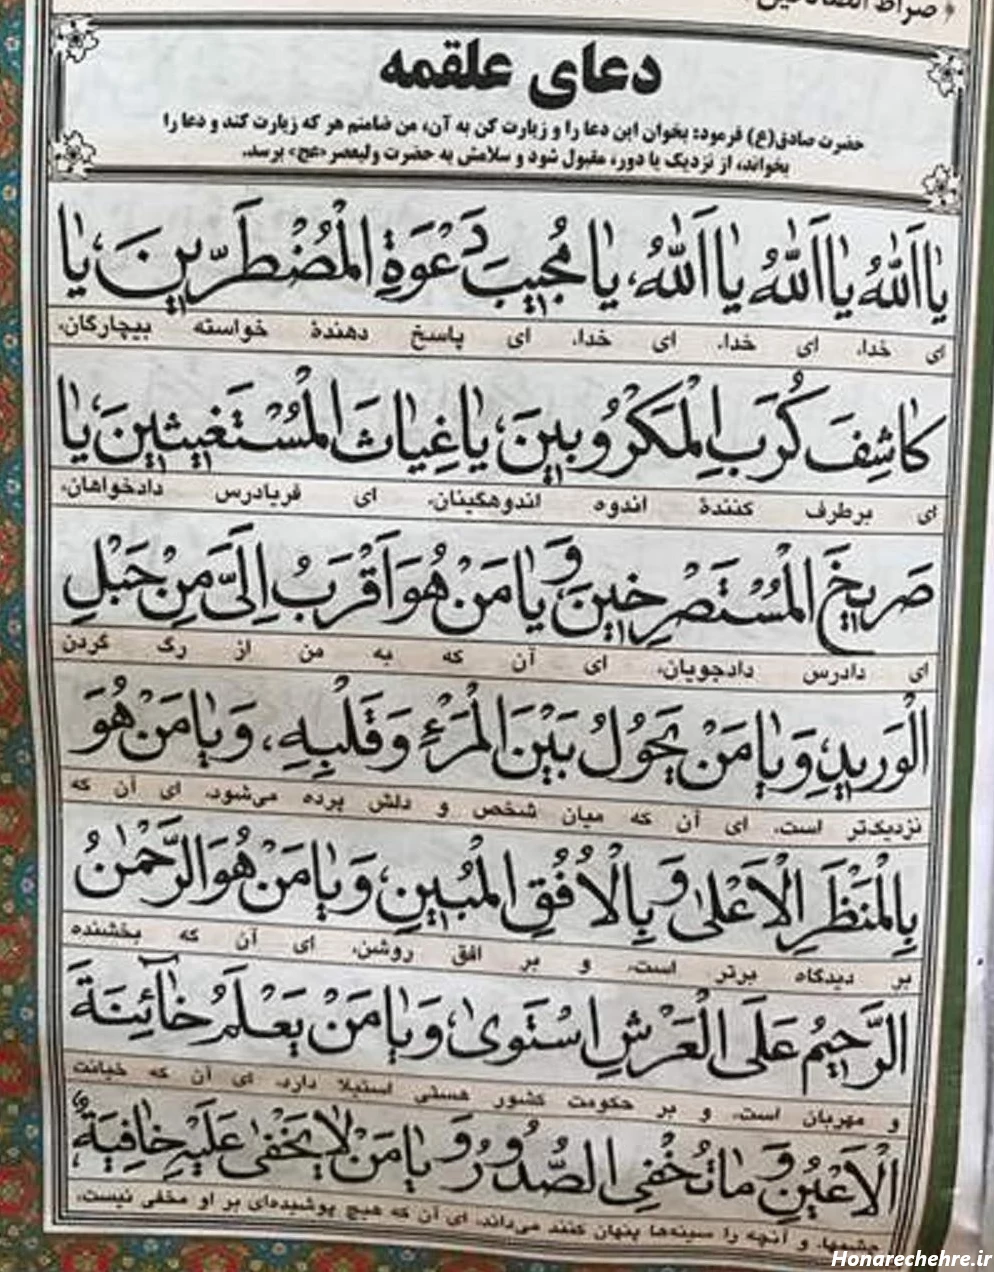 ﴿ صراط الصادقین
دعای علقمه
حضرت صادق(ع) فرمود: بخوان این دعا را و زیارت کن به آن، من ضامنم هر که زیارت کند و دعا را
بخواند، از نزدیک یا دور، مقبول شود و سلامش به حضرت ولیعصر«عج» برسد.
يٰا اَللّٰهُ يٰا اَللّٰهُ يٰا اَللّٰهُ، يٰا مُجِيبَ دَعْوَةِ الْمُضْطَرّينَ، يٰا
ای خدا، ای خدا، ای خدا، ای پاسخ دهندۀ خواسته بیچارگان،
كٰاشِفَ كُرَبِ الْمَكْرُوبينَ، يٰا غِيٰاثَ الْمُسْتَغيثينَ، يٰا
ای برطرف کنندۀ اندوه اندوهگینان، ای فریادرس دادخواهان،
صَريخَ الْمُسْتَصْرِخينَ، وَ يٰا مَنْ هُوَ اَقْرَبُ اِلَىَّ مِنْ حَبْلِ
ای دادرس دادجویان، ای آن که به من از رگ گردن
الْوَريدِ، وَ يٰا مَنْ يَحُولُ بَيْنَ الْمَرْءِ وَ قَلْبِهِ، وَ يٰا مَنْ هُوَ
نزدیک‌تر است، ای آن که میان شخص و دلش پرده می‌شود، ای آن که
بِالْمَنْظَرِ الْاَعْلىٰ وَ بِالْاُفُقِ الْمُبينِ، وَ يٰا مَنْ هُوَ الرَّحْمٰنُ
بر دیدگاه برتر است، و بر افق روشن، ای آن که بخشنده
الرَّحيمُ عَلَى الْعَرْشِ اسْتَوىٰ، وَ يٰا مَنْ يَعْلَمُ خٰائِنَةَ
و مهربان است، و بر حکومت کشور هستی استیلا دارد، ای آن که خیانت
الْاَعْيُنِ وَ مٰا تُخْفِى الصُّدُورُ وَ يٰا مَنْ لٰا يَخْفىٰ عَلَيْهِ خٰافِيَةٌ،
چشمها، و آنچه را سینه‌ها پنهان کنند می‌داند، ای آن که هیچ پوشیده‌ای بر او مخفی نیست،
Honarechehre.ir